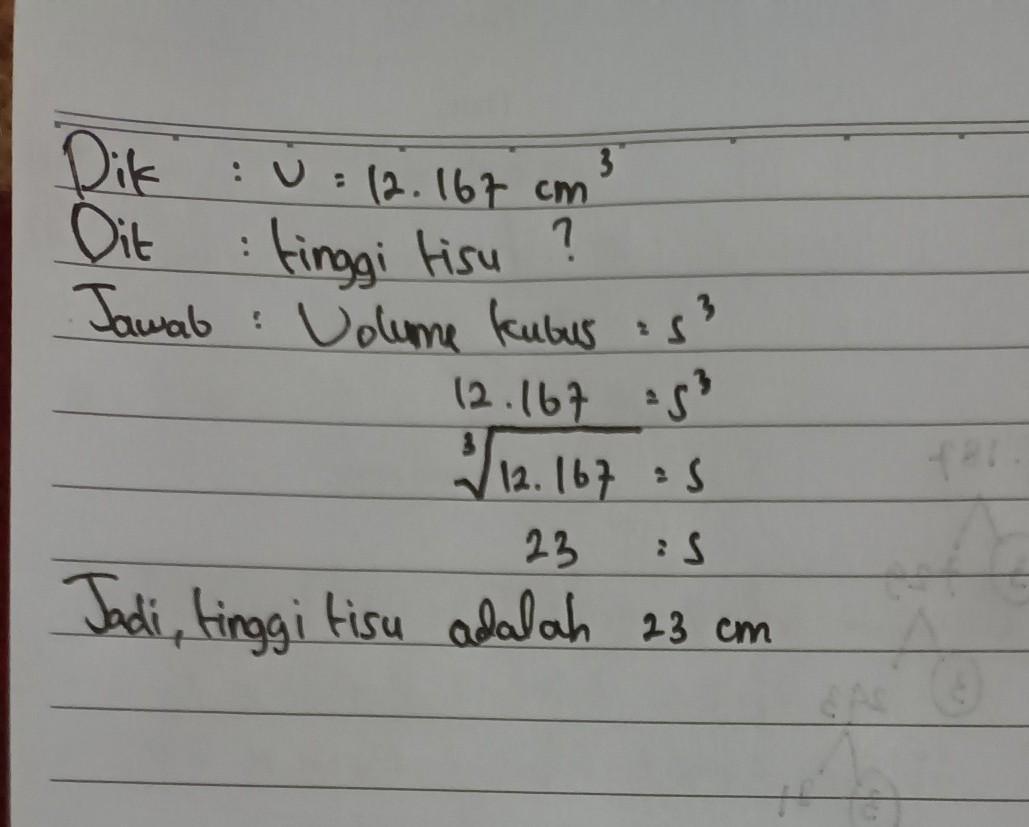 Dik : V = 12.167 cm³
Dit : tinggi tisu ?
Jawab : Volume kubus = s³
12.167 = s³
³√12.167 = s
23 = s
Jadi, tinggi tisu adalah 23 cm